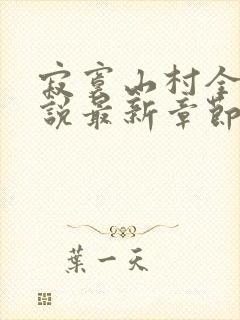 寂寞山村全
說最新章節
葉一天